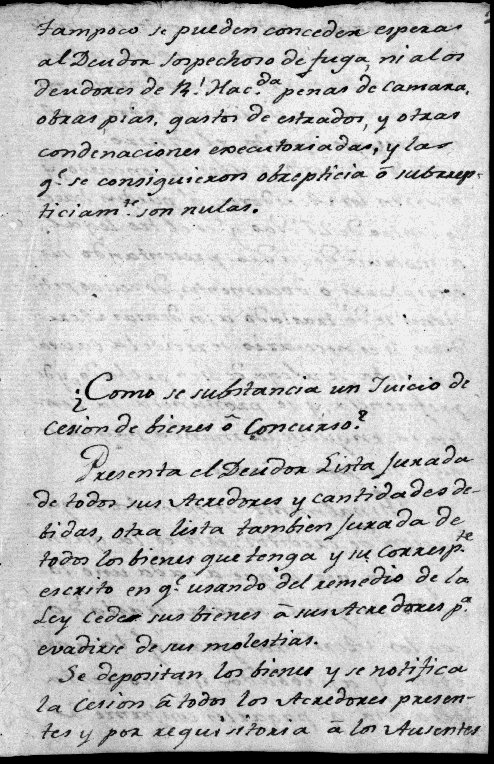 tampoco se pueden conceder esperas
al Deudor sospechoso de fuga, ni a los
deudores de Rl. Hacda. penas de camara,
obras pias, gastos de estrados, y otras
condenaciones executoriadas, y las
qe. se consiguieron obrepticia ó subrrep-
ticiamte. son nulas.
¿Como se substancia un Juicio de
Cesion de bienes ó Concurso?
Presenta el Deudor Lista Jurada
de todos sus Acredores y cantidades de-
bidas, otra lista tambien jurada de
todos los bienes que tenga y su correspte.
escrito en qe. usando del remedio de la
Ley Cede sus bienes á sus Acredores pa.
evadirse de sus molestias.
Se depositan los bienes y se notifica
la Cesion á todos los Acredores presen-
tes y por requisitoria á los Ausentes